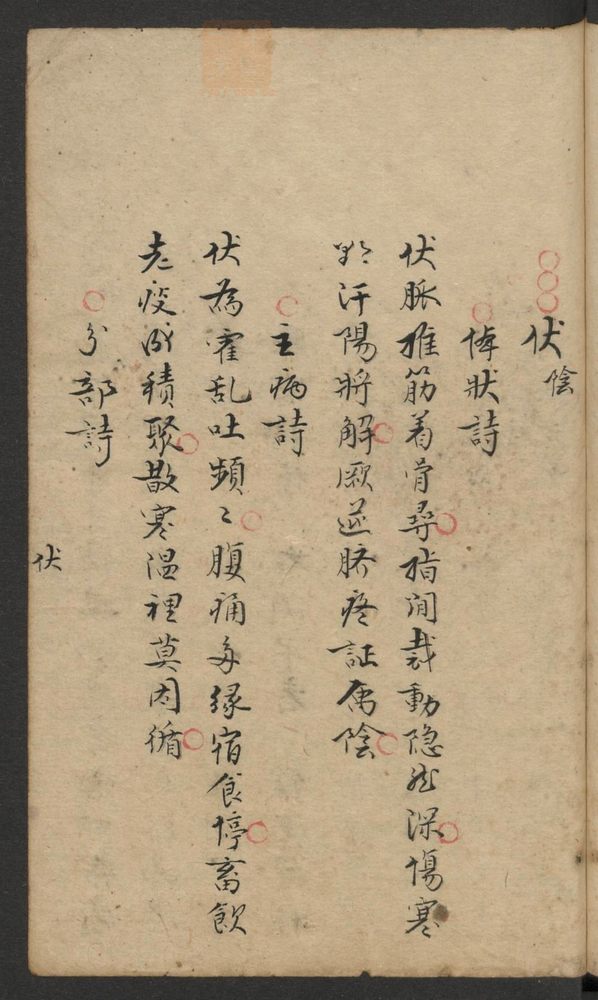 伏陰
体狀詩
伏脈推筋着骨尋指間裁動隐然深傷寒
欲汗陽將解厥逆臍疼証属陰
主病詩
伏為霍乱吐頻〻腹痛多緣宿食停畜飲
老痰成積聚散寒温裡莫因循
分部詩
伏